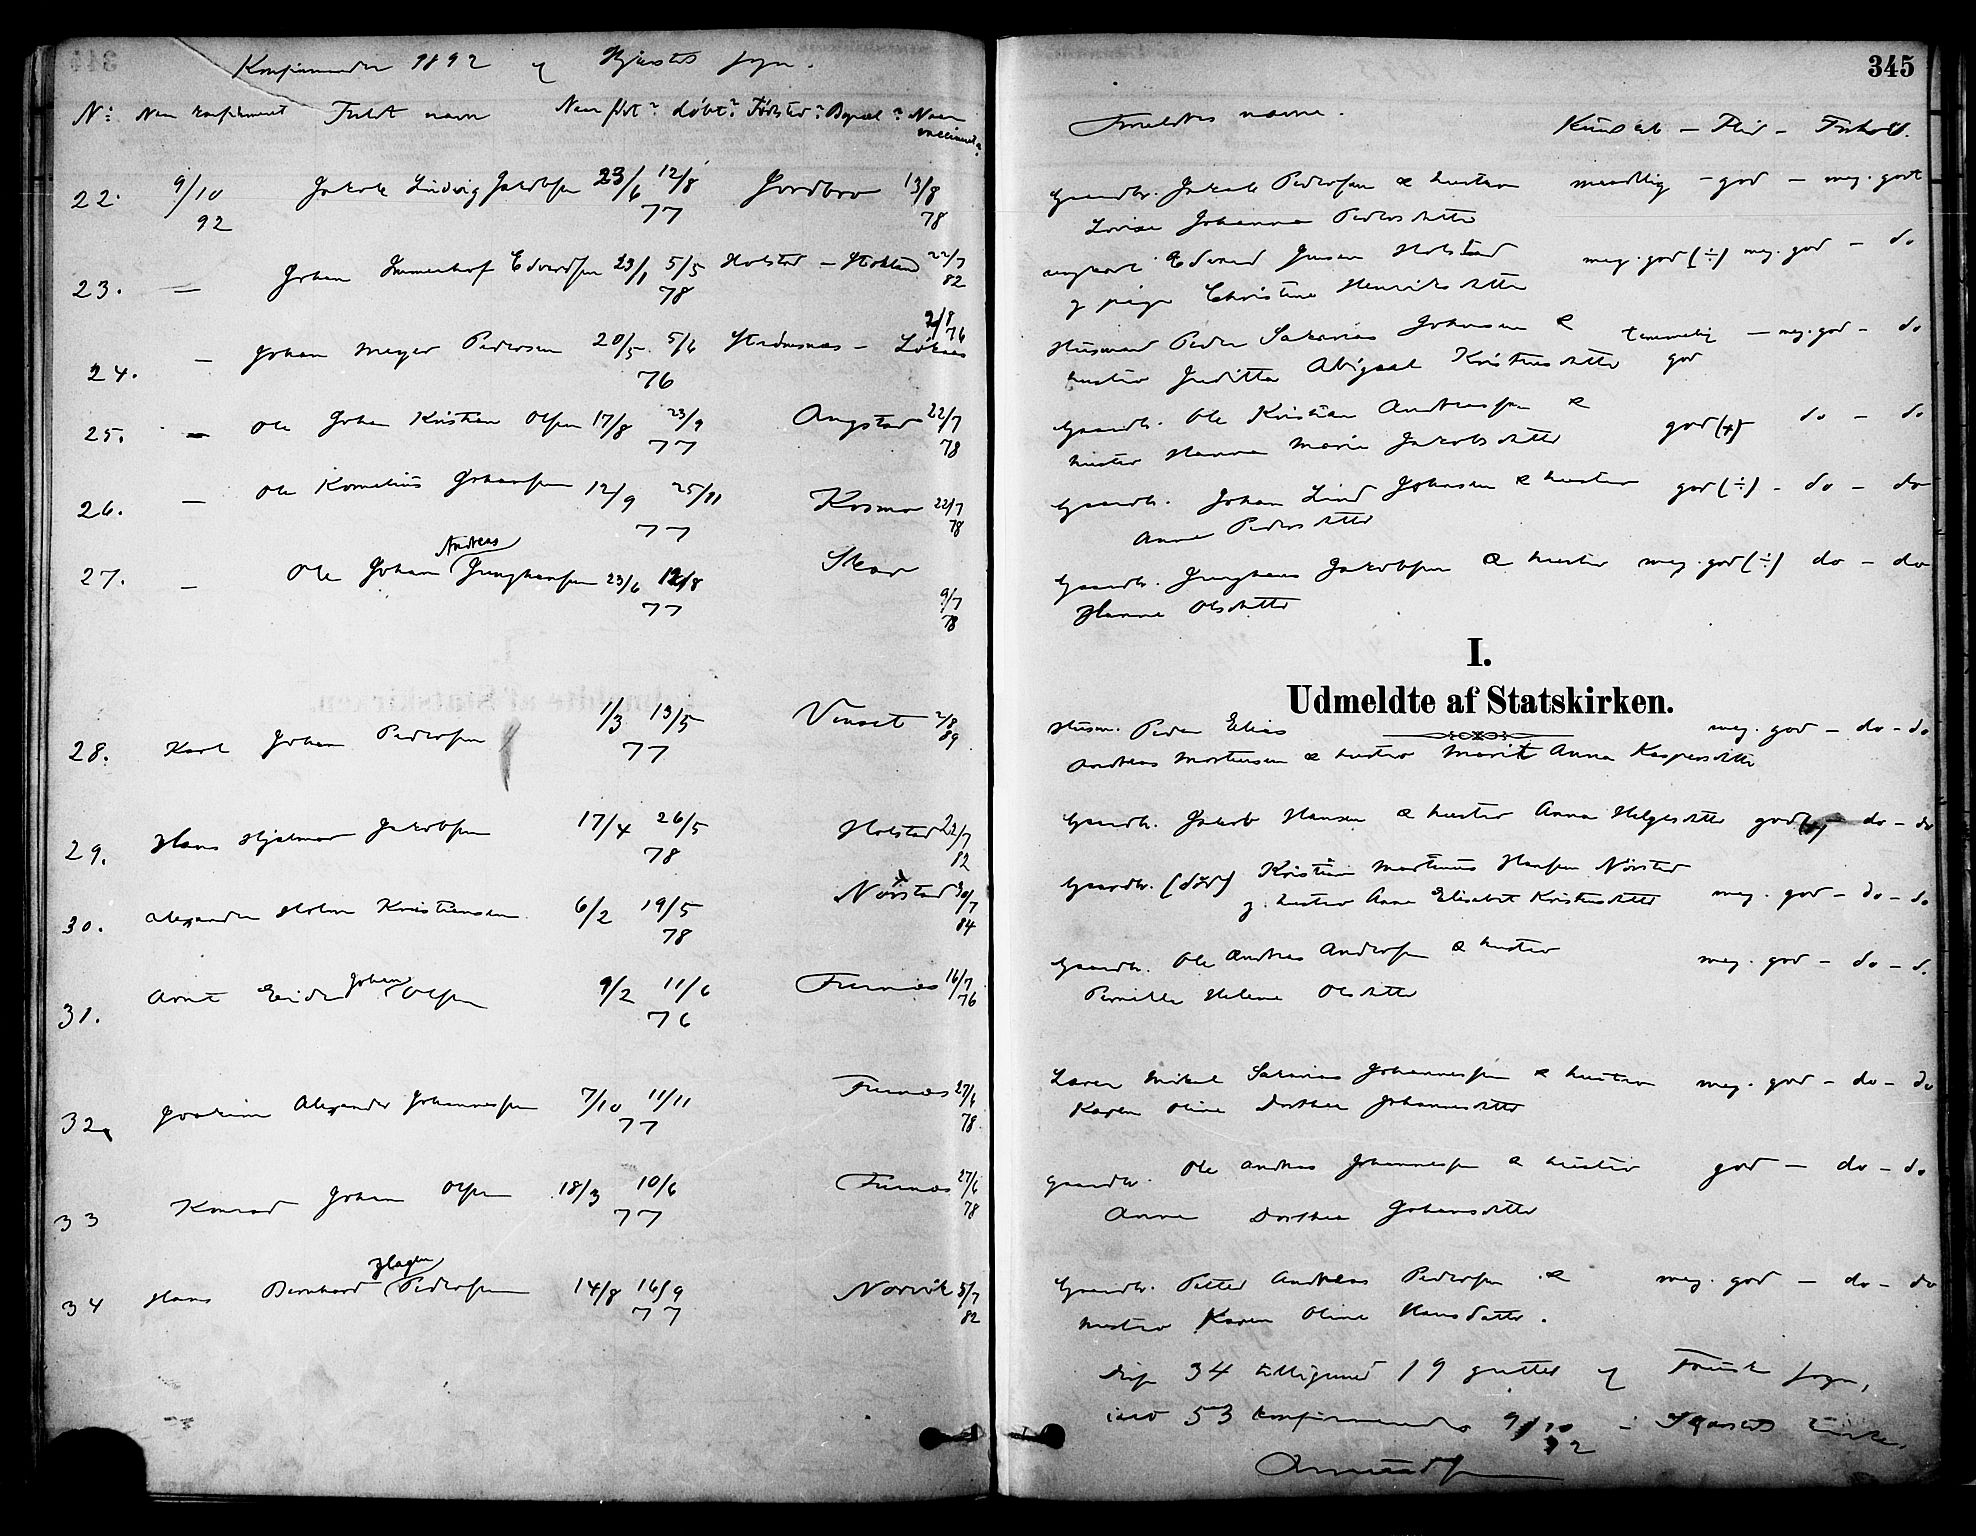 345
Konfirmander 1892 af Skjerstad sogn.
N: Naar konfirmeret Fuldt navn Naar født? døbt? Fødested? Bopæl? Naar vaccineret?
Forældres navne. Kundskab – Flid – Forhold.
22. 9/10 92 Jakob Ludvig Jakobsen 23/6 12/8 77 13/8 78
Gaardbr. Jakob Pedersen & hustru maadelig – god – meg. godt
Lovise Johanna Pedersdatter
23. – Johan Edvardsen 23/1 5/5 78 Holstad – 22/7 82
ungkarl Edvard Jensen Holstad meg. god (÷) meg. god – do
og pige Christine Henriksdatter
24. – Johan Meyer Pedersen 20/5 5/6 76 2/8 76
Husmand Peder Sakarias Johnsen & temmelig god – meg. god – do
hustru Juditta Abigael Kristensdatter
25. – Ole Johan Kristian Olsen 17/8 23/9 77 22/7 78
Gaardbr. Ole Kristian Andreassen & god (+) do – do
hustru Hanna Maria Jakobsdatter
26. – Ole Kornelius Johansen 12/9 25/11 77 Kosmo 22/7 78
Gaardbr. Johan Lind Johnsen & hustru god (÷) – do – do
Anne Pedersdatter
27. – Ole Johan Andreas Junghansen 23/6 12/8 77 Skar 9/7 78
Gaardbr. Junghans Jakobsen & hustru meg. god (÷) do – do
Hanna Olsdatter
I.
Udmeldte af Statskirken.
28. Karl Johan Pedersen 1/3 13/5 77 Venset 2/8 89
Husm. Peder Elias meg. god – do – do
Andreas Mortensen & hustru Marit Anna Kaspersdatter
29. Hans Hjalmar Jakobsen 17/4 26/5 78 Holstad 22/7 82
Gaardbr. Jakob Hansen & hustru Anna Helgesdatter god (+) – do – do
30. Alexander Holm Kristiansen 6/2 19/5 78 Nørstad 30/7 84
Gaardbr. (død) Kristian Martinus Hansen Nørstad
og hustru Anna Elisabet Kristensdatter meg. god – do – do
31. Arnt Johan Olsen 9/2 11/6 76 Furnes 16/7 76
Gaardbr. Ole Andreas Andersen & hustru meg. god – do – do
Pernille Helene Olsdatter
32. Joakim Alexander Johannessen 7/10 11/11 77 Furnes 27/6 78
Lærer Mikal Sakarias Johannessen & hustru meg. god – do – do
Karen Oline Dorthea Johannesdatter
33 Konrad Johan Olsen 18/3 10/6 77 Furnes 27/6 78
Gaardbr. Ole Andreas Johannessen & hustru god – do – do
Anna Dorthea Johansdatter
34 Hans Bernhard Hagen Pedersen 14/8 16/9 77 Norvik 5/7 82
Gaardbr. Petter Andreas Pedersen & meg. god – do – do
hustru Karen Oline Hansdatter.
Disse 34 tilligemed 19 gutter af Fauske sogn,
ialt 53 konfirmander 9/10 92 i Skjerstad kirke.